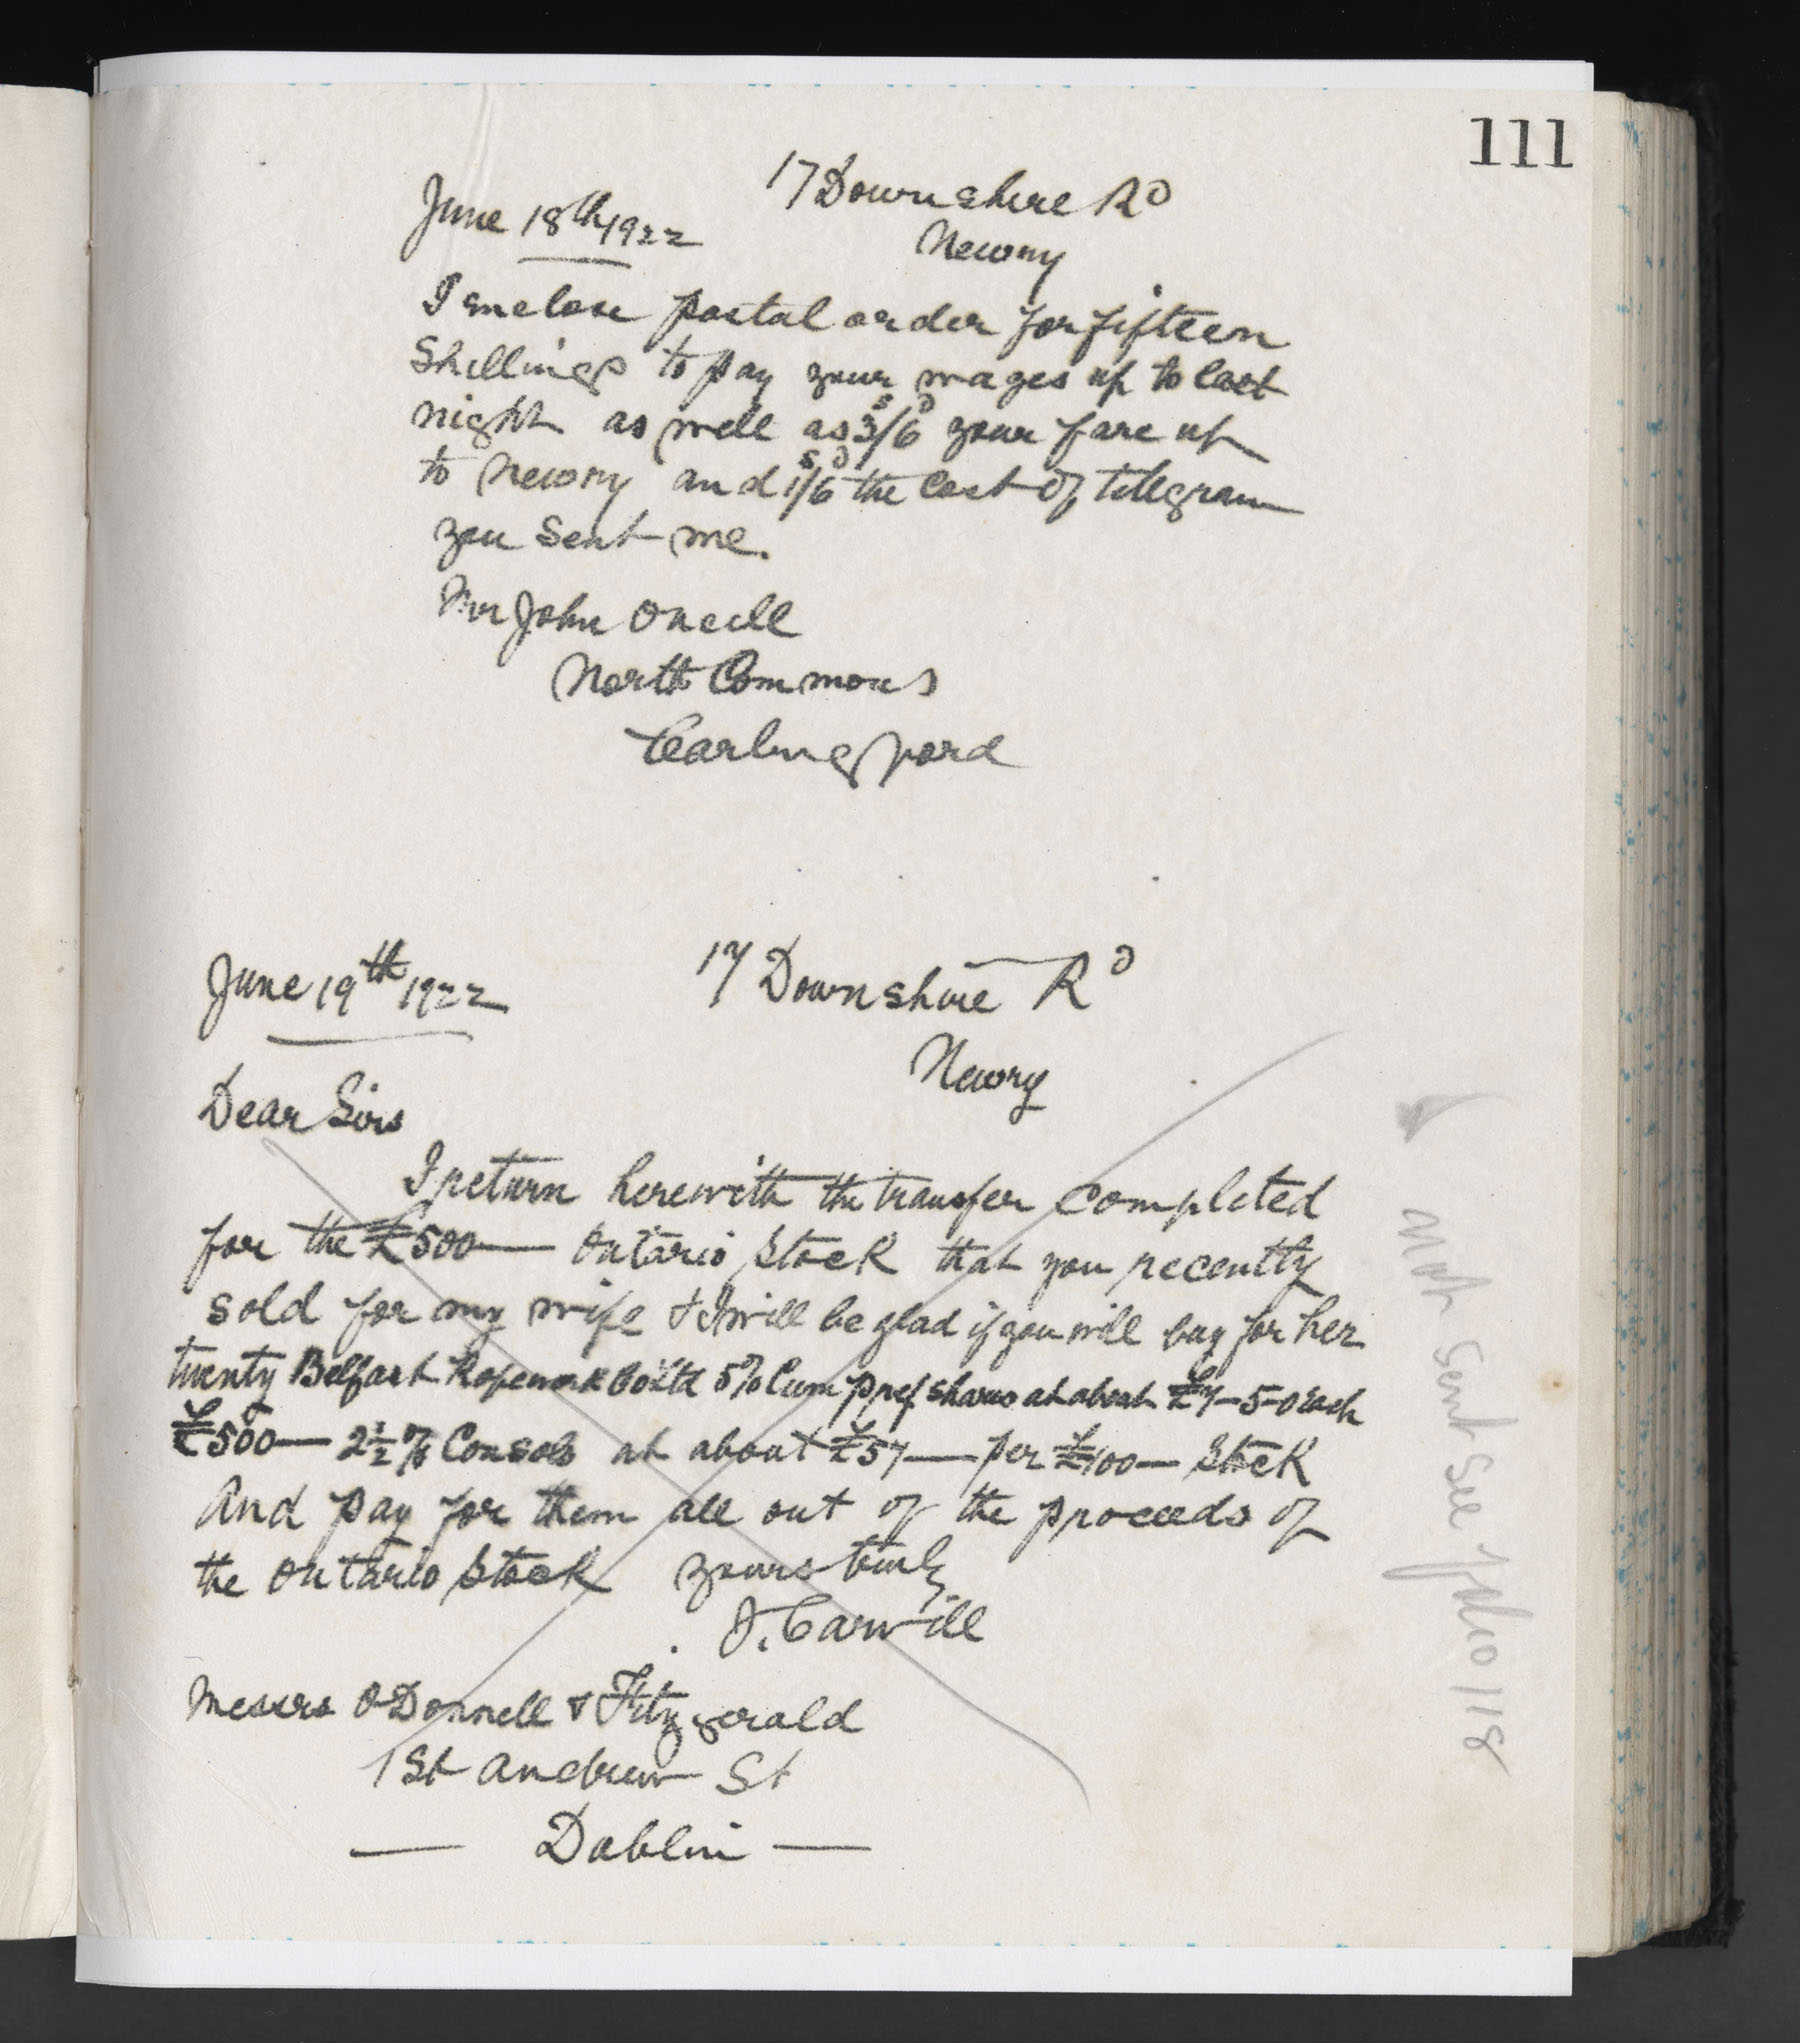 111
17 Downshire Rd
June 18th 1922
Newry
I enclose postal order for fifteen
Shillings to pay your wages up to last
night as well as 3s/6d your fare up
to Newry and 1s/6d the Cost of telegram
you Sent me.
Mr John ONeill
North Commons
Carlingford
June 19th 1922
17 Downshire Rd
Newry
Dear Sirs
I return herewith the transfer completed
for the £500— Ontario Stock that you recently
sold for my wife & I will be glad if you will buy for her
twenty Belfast Ropework Co Ltd 5% Cum pref shares at about £7-5-0 each
£500— 2½% Consols at about £57— per £100— Stock
And pay for them all out of the proceeds of
the Ontario Stock yours truly
J. Carvill
Messrs ODonnell & Fitzgerald
1 St Andrew St
— Dublin —
Not Sent See folio 118